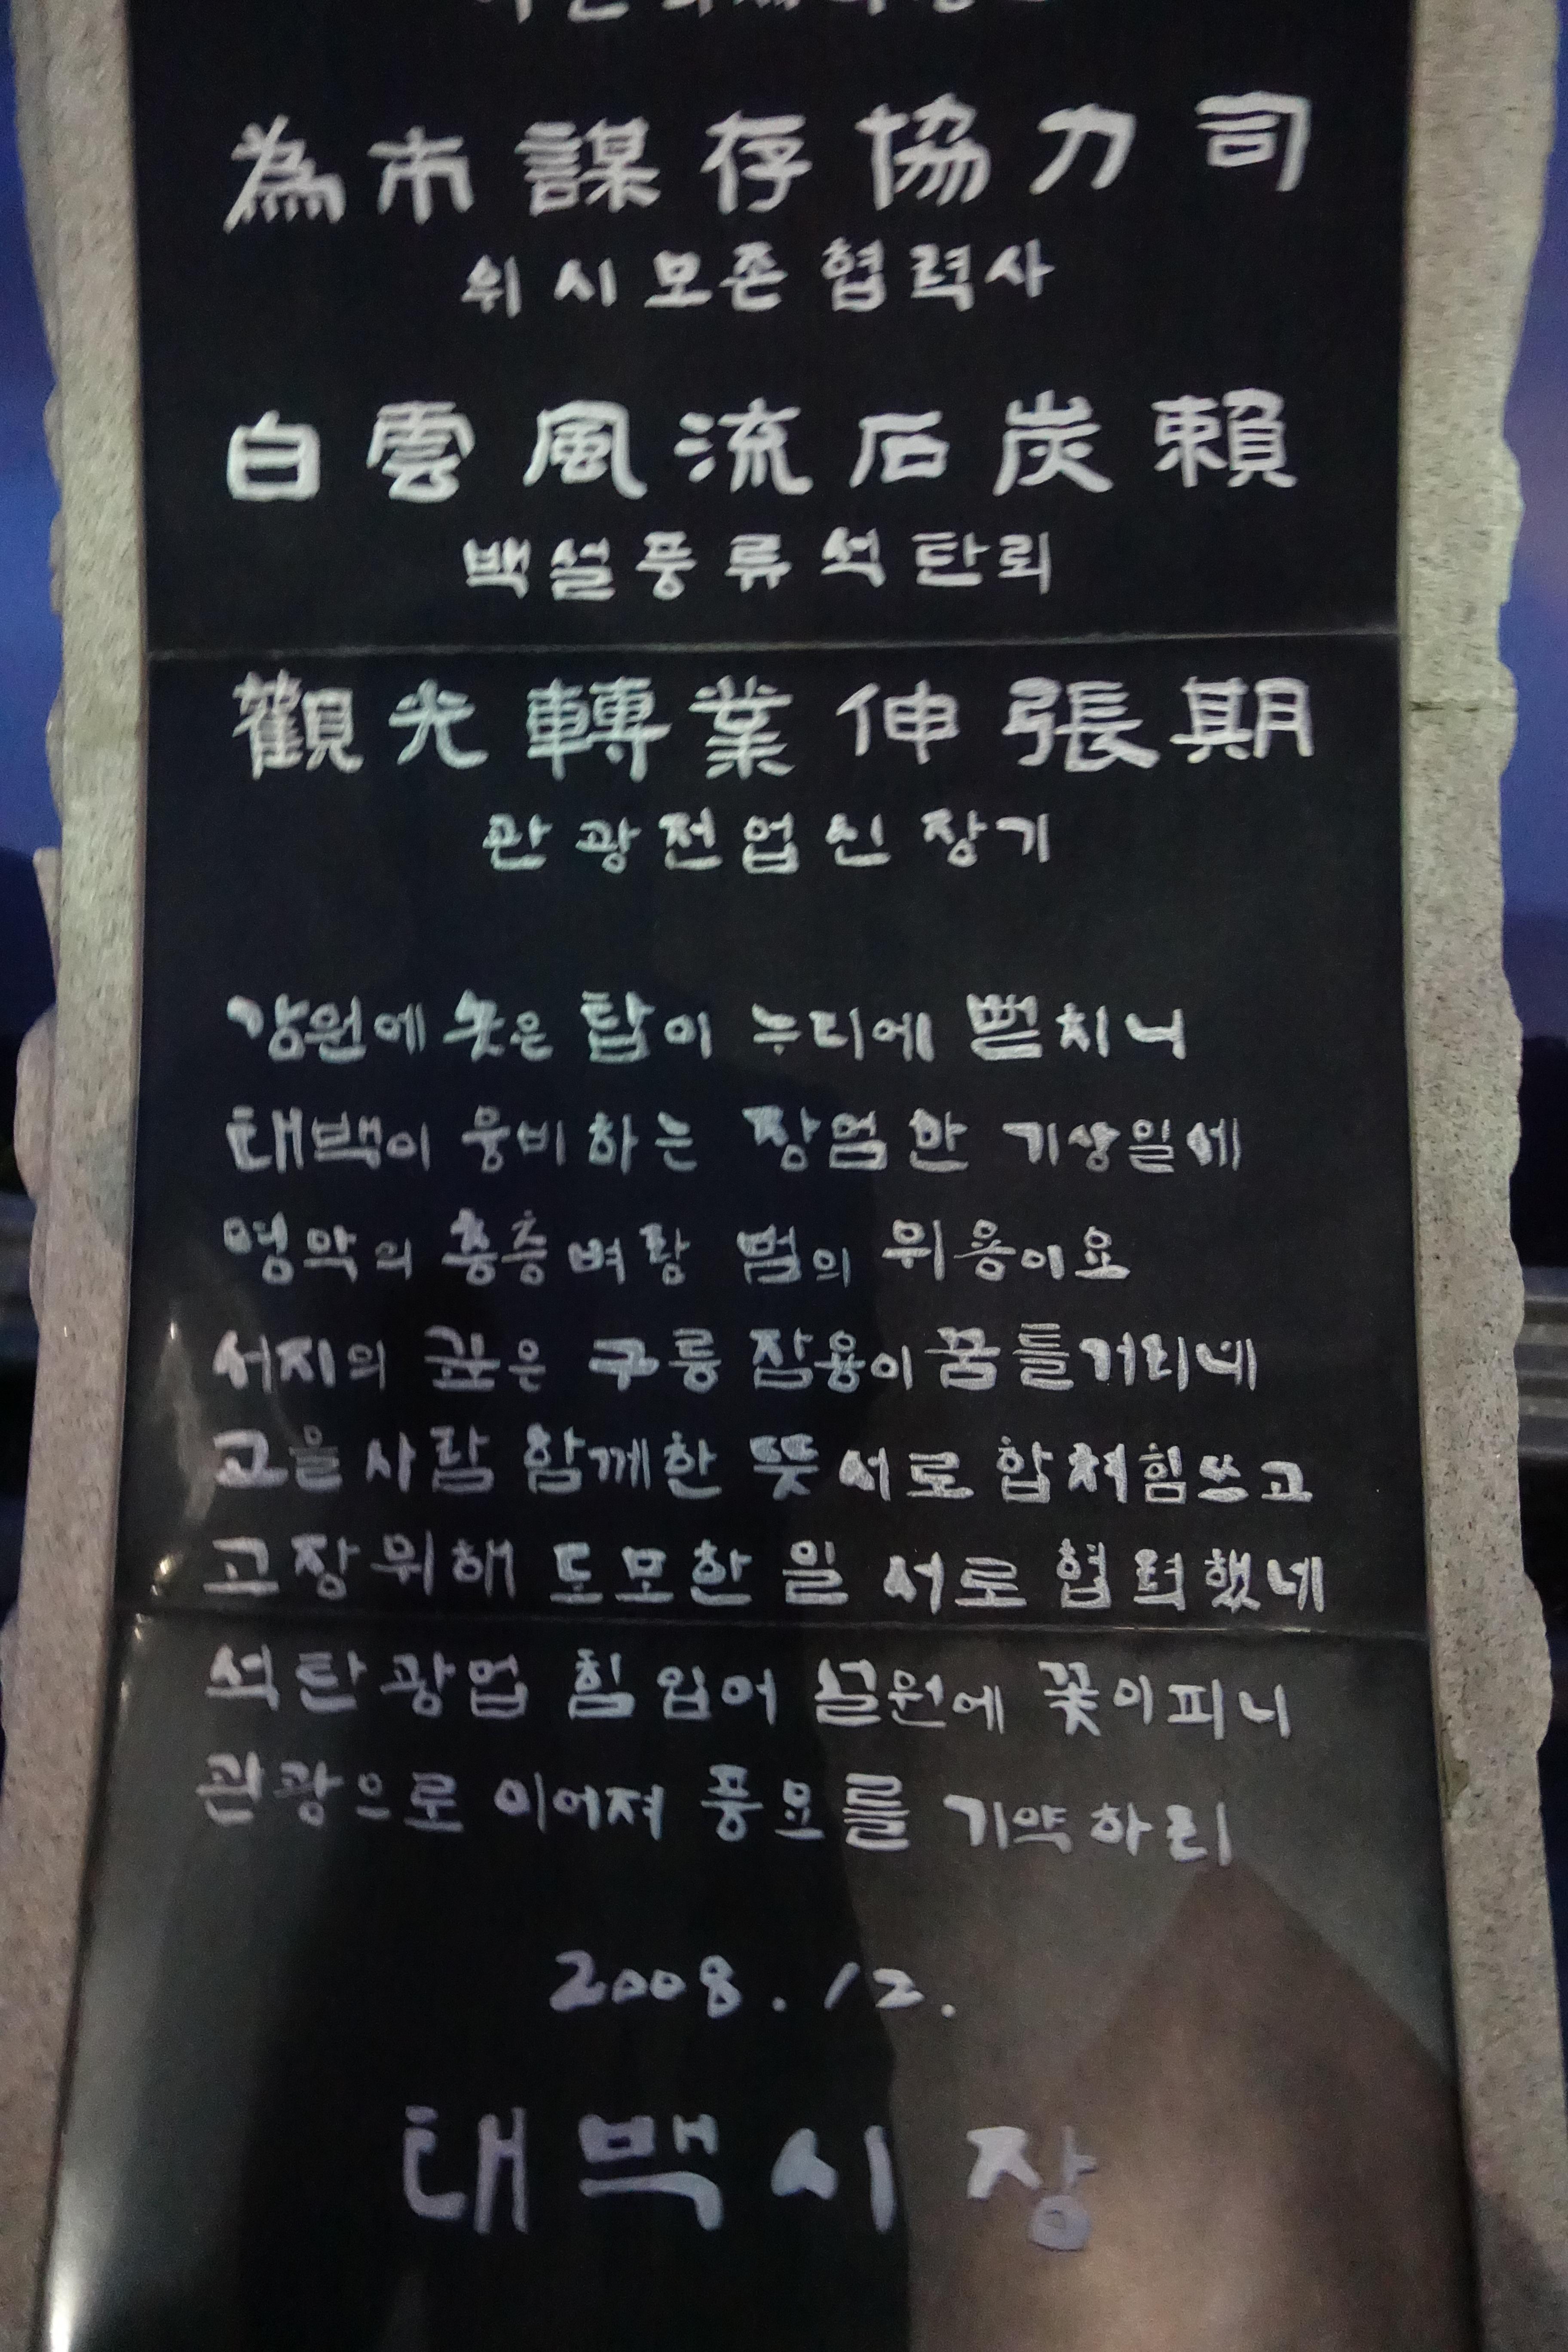 為市謀存協力司
위시모존협력사
白雲風流石炭賴
백설풍류석탄뢰
觀光轉業伸張期
관광전업신장기
강원에 솟은 탑이 누리에 뻗치니
태백이 웅비하는 장엄한 기상일세
명악의 층층벼랑 범의 위용이요
서지의 깊은 구릉 잠용이 꿈틀거리네
고을 사람 함께한 뜻 서로 합쳐힘쓰고
고장위해 도모한 일 서로 협력했네
석탄광업 힘입어 설원에 꽃이피니
관광으로 이어져 풍요를 기약하리
2008.12.
태백시장